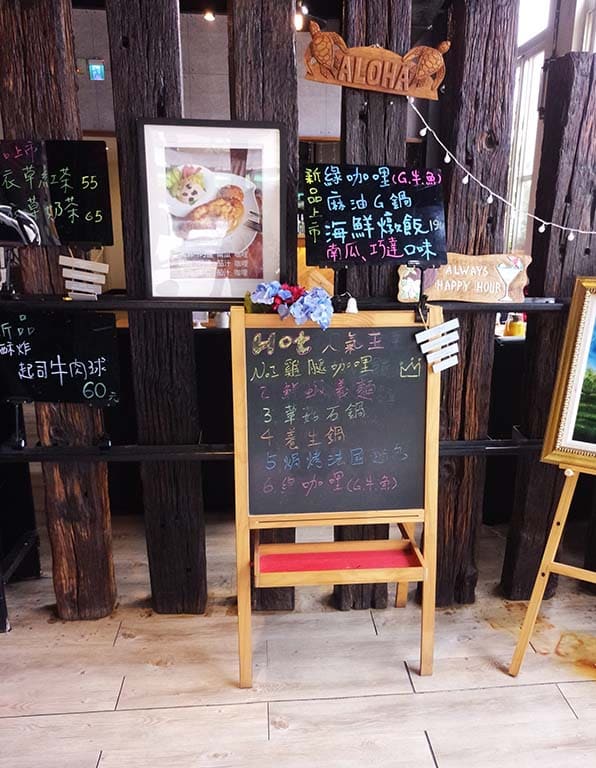 ALOHA
品上市
衣草紅茶 55
草奶茶 65
新品上市
綠咖哩(G.牛.魚)
麻油G鍋
海鮮燉飯 19
南瓜、巧達 口味
咖哩
茄汁 咖哩
ALWAYS
HAPPY HOUR
新品
酥炸
起司牛肉球
60元
Hot 人氣王
No.1 雞腿咖哩
2. 鮮蝦義麵
3. 草菇石鍋
4. 養生鍋
5. 焗烤法国
6. 綠咖哩(G.牛.魚)